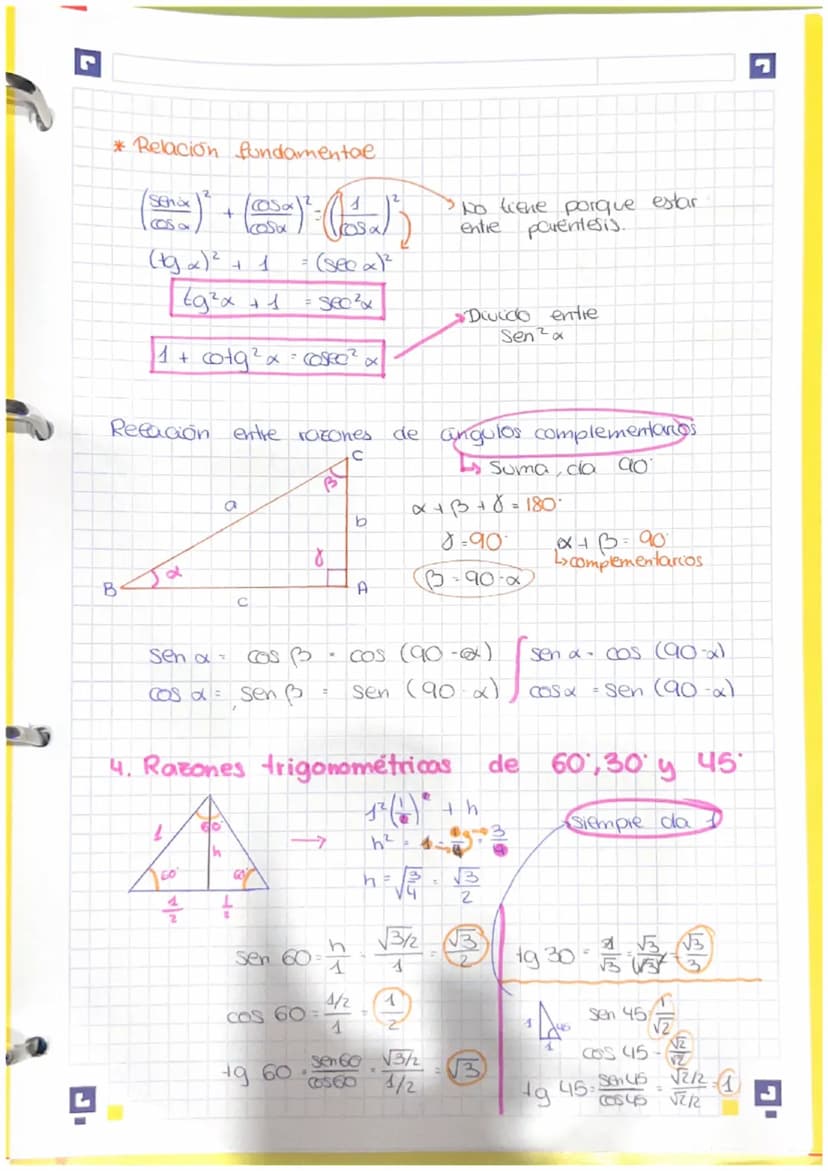 * Relación fundamental
(sen α / cos α)² + (cos α / cos α)² = (1 / cos α)²
No tiene porque estar
entre paréntesis.
(tg α)² + 1 = (sec α)²
tg²α + 1 = sec²α
Divido entre
sen²α
1 + cotg²α = cosec²α
Relación entre razones de ángulos complementarios
Suma, da 90°
C
β
a
b
γ
α
B
A
c
α + β + γ = 180°
γ = 90°
α + β = 90°
complementarios
β = 90-α
sen α = cos β = cos (90-α)
cos α = sen β = sen (90-α)
sen α = cos (90-α)
cos α = sen (90-α)
4. Razones trigonométricas de 60°, 30° y 45°
1
60°
h
60°
60°
1/2
1/2
h = √(3/4) = √3/2
siempre da 1
sen 60 = h/1 = (√3/2)/1 = √3/2
cos 60 = (1/2)/1 = 1/2
tg 60 = sen60/cos60 = (√3/2)/(1/2) = √3
tg 30 = 1/√3 = √3/(√3)² = √3/3
1
1
sen 45 = 1/√2
tg 45 = sen45/cos45 = (√2/2)/(√2/2) = 1